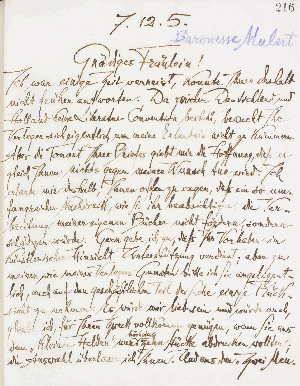 216
7.12.5.
Baronesse Mulert
Gnädiges Fräulein!
Ich war einige Zeit verreist, konnte Ihnen deshalb
nicht früher antworten. Da zwischen Deutschland und
Holland keine Literatur-Convention besteht, braucht Ihr
Verleger sich eigentlich um meine Erlaubnis nicht zu kümmern.
Aber die Tonart Ihrer Zeilen giebt mir die Hoffnung, daß er
gleich Ihnen nichts gegen meinen Wunsch tun wird. Ich
erlaube mir deshalb, Ihnen offen zu sagen, daß ein so um-
fangreicher Nachdruck, wie Sie ihn beabsichtigen, die Ver-
breitung meiner eigenen Bücher nicht fördern, sondern
schädigen würde. Gern gebe ich zu, daß Ihr Vorhaben in
künstlerischer Hinsicht Unterstützung verdient; aber zu
meinen wie meines Verlegers Gunsten bitte ich Sie angelegent-
lich, auch auf den geschäftlichen Teil der Sache einige Rück-
sicht zu nehmen. Es wäre mir lieb und würde auch,
glaub ich, für Ihren Zweck vollkommen genügen, wenn Sie aus
dem "Kleinen Helden" nur zehn Stücke abdrucken wollten;
die Auswahl überlasse ich Ihnen. Und aus den "Zwei Men-